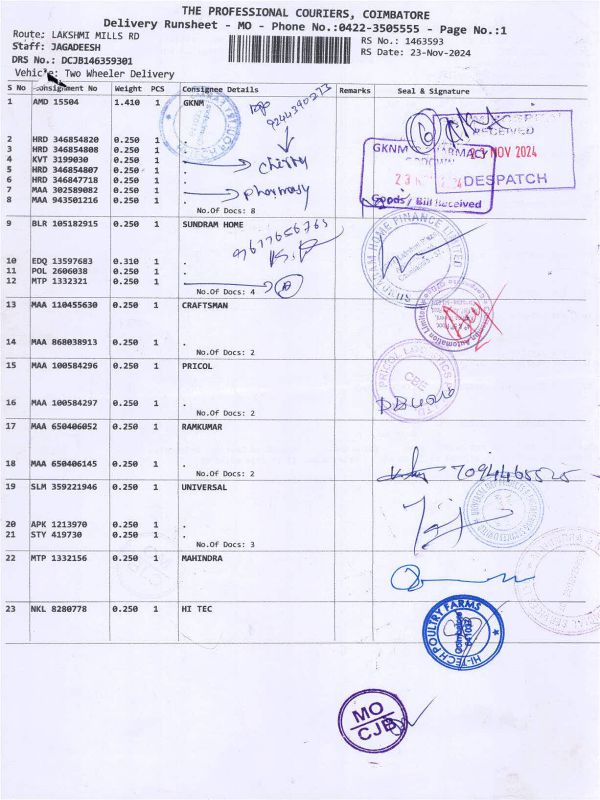 THE PROFESSIONAL COURIERS, COIMBATORE
Delivery Runsheet - MO - Phone No.:0422-3505555 - Page No.:1
Route: LAKSHMI MILLS RD
RS No.: 1463593
Staff: JAGADEESH
RS Date: 23-Nov-2024
DRS No.: DCJB146359301
Vehicle: Two Wheeler Delivery
S No Consignment No Weight PCS Consignee Details Remarks Seal & Signature
1 AMD 15504 1.410 1 GKNM
2 HRD 346854820 0.250 1 .
3 HRD 346854808 0.250 1 .
4 KVT 3199030 0.250 1 . cherry
5 HRD 346854807 0.250 1 .
6 HRD 346847718 0.250 1 .
7 MAA 302589082 0.250 1 . pharmasy
8 MAA 943501216 0.250 1 .
No.Of Docs: 8
RECEIVED
23 NOV 2024
DESPATCH
GKNM PHARMACY
GODOWN
Goods / Bill Received
9 BLR 105182915 0.250 1 SUNDRAM HOME
10 EDQ 13597683 0.310 1 .
11 POL 2606038 0.250 1 .
12 MTP 1332321 0.250 1 .
No.Of Docs: 4
SUNDARAM HOME FINANCE LIMITED
13 MAA 110455630 0.250 1 CRAFTSMAN
Automation Limited
14 MAA 868038913 0.250 1 .
No.Of Docs: 2
15 MAA 100584296 0.250 1 PRICOL
16 MAA 100584297 0.250 1 .
No.Of Docs: 2
PRICOL
CBE
17 MAA 650406052 0.250 1 RAMKUMAR
18 MAA 650406145 0.250 1 .
No.Of Docs: 2
7094465525
19 SLM 359221946 0.250 1 UNIVERSAL
20 APK 1213970 0.250 1 .
21 STY 419730 0.250 1 .
No.Of Docs: 3
22 MTP 1332156 0.250 1 MAHINDRA
23 NKL 8280778 0.250 1 HI TEC
HI-TECH POULTRY FARMS
Coimbatore
MO
CJB